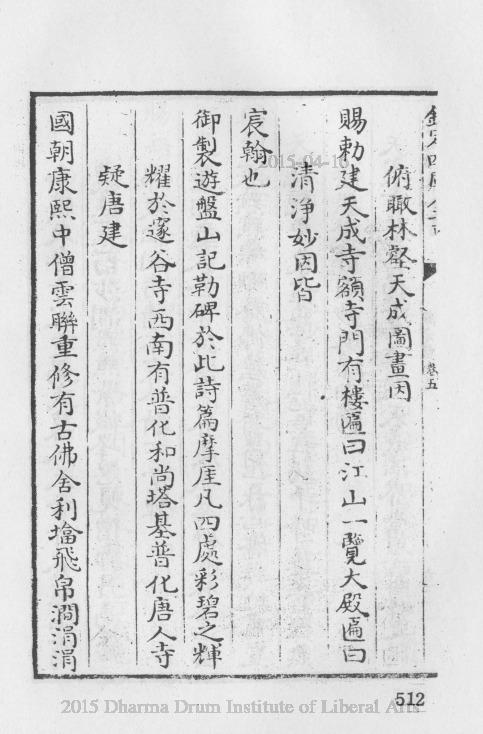 欽定四庫全書
卷五
俯瞰林壑天成圖畫因
賜勅建天成寺額寺門有樓匾曰江山一覽大殿匾曰
清淨妙因皆
宸翰也
御製遊盤山記勒碑於此詩篇摩厓凡四處彩碧之輝
耀於邃谷寺西南有普化和尚塔基普化唐人寺
疑唐建
國朝康熙中僧雲聨重修有古佛舍利塔飛帛澗涓涓
2015-04-10
512
2015 Dharma Drum Institute of Liberal Arts